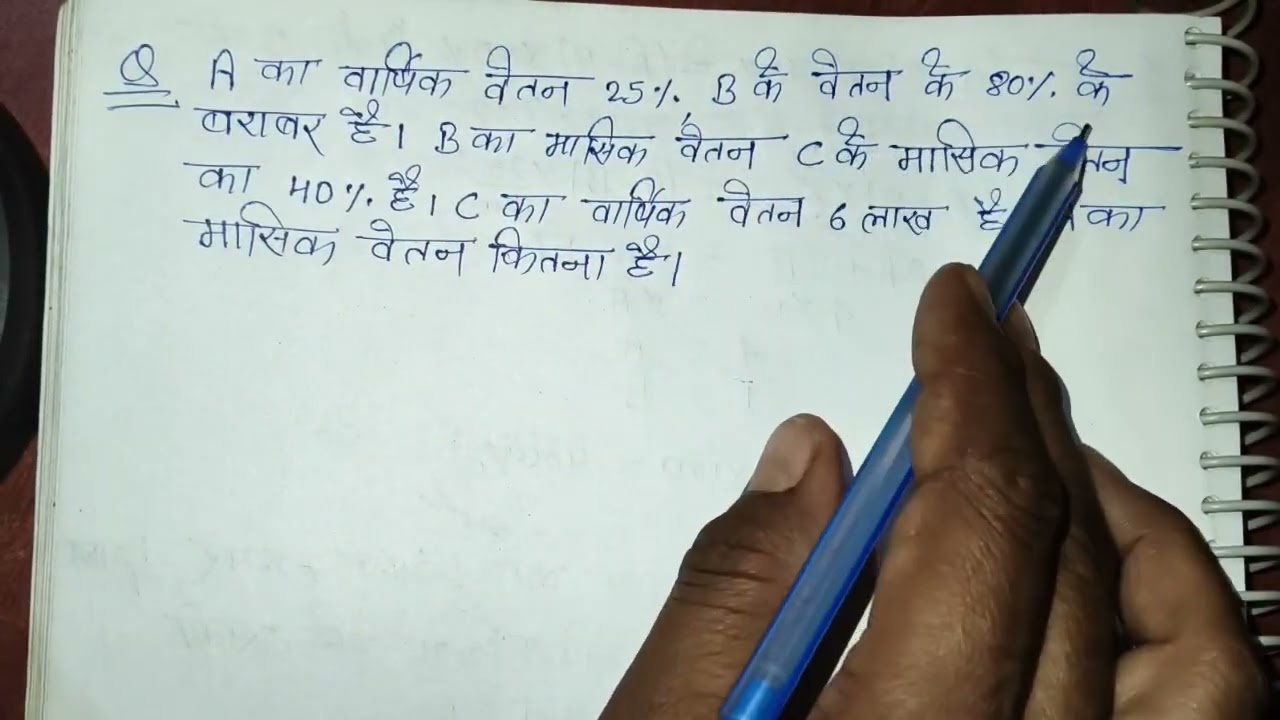 Q A का वार्षिक वेतन 25%. B के वेतन के 80%. के
बराबर है। B का मासिक वेतन C के मासिक
का 40%. है। C का वार्षिक वेतन 6 लाख है का
मासिक वेतन कितना है।